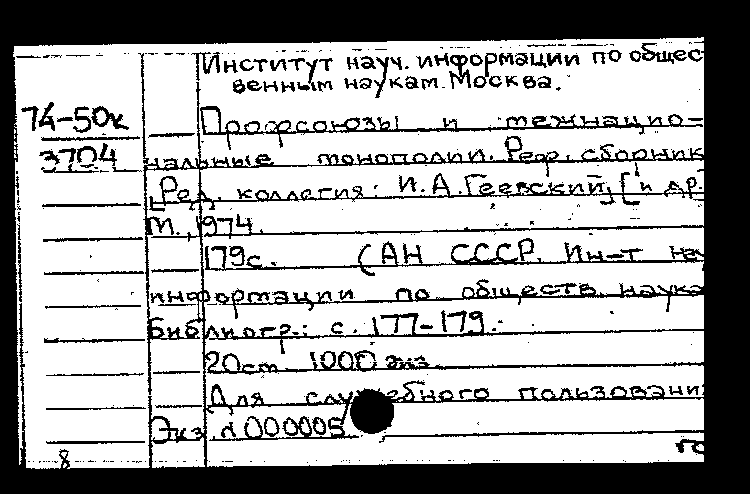 Институт науч. информации по общес
венным наукам. Москва.
74-50к
Профсоюзы и межнацио-
3704
нальные монополии. Реф. сборник
[Ред. коллегия: И.А.Геевский] [и др.
М., 1974.
179с. (АН СССР. Ин-т на
информации по обществ. наука
Библиогр.: с. 177-179.
20см. 1000 экз.
Для служебного пользовани
Экз. № 000005
8
го